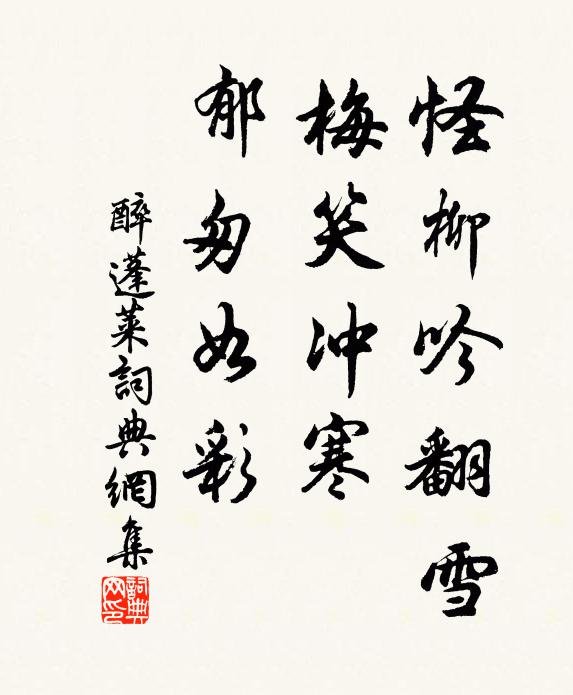 怪柳吟翻雪
梅笑冲寒
郁匆如彩
醉蓬萊詞典網集
詞典网印